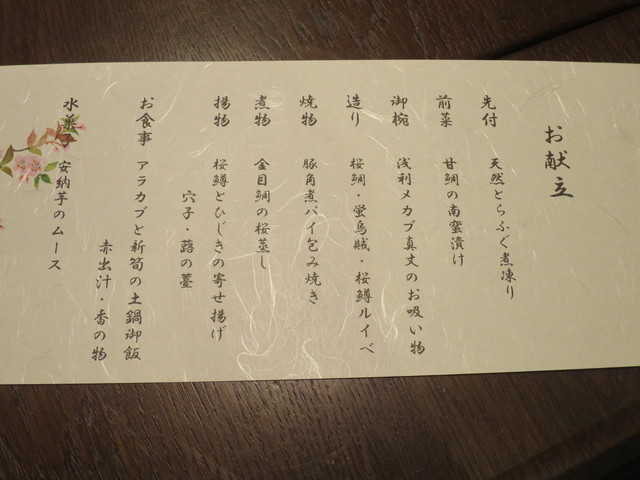 お献立
先付 天然とらふぐ煮凍り
前菜 甘鯛の南蛮漬け
御椀 浅利メカブ真丈のお吸い物
造り 桜鯛・蛍烏賊・桜鱒ルイベ
焼物 豚角煮パイ包み焼き
煮物 金目鯛の桜蒸し
揚物 桜鱒とひじきの寄せ揚げ
穴子・蕗の薹
お食事 アラカブと新筍の土鍋御飯
赤出汁・香の物
水菓子 安納芋のムース